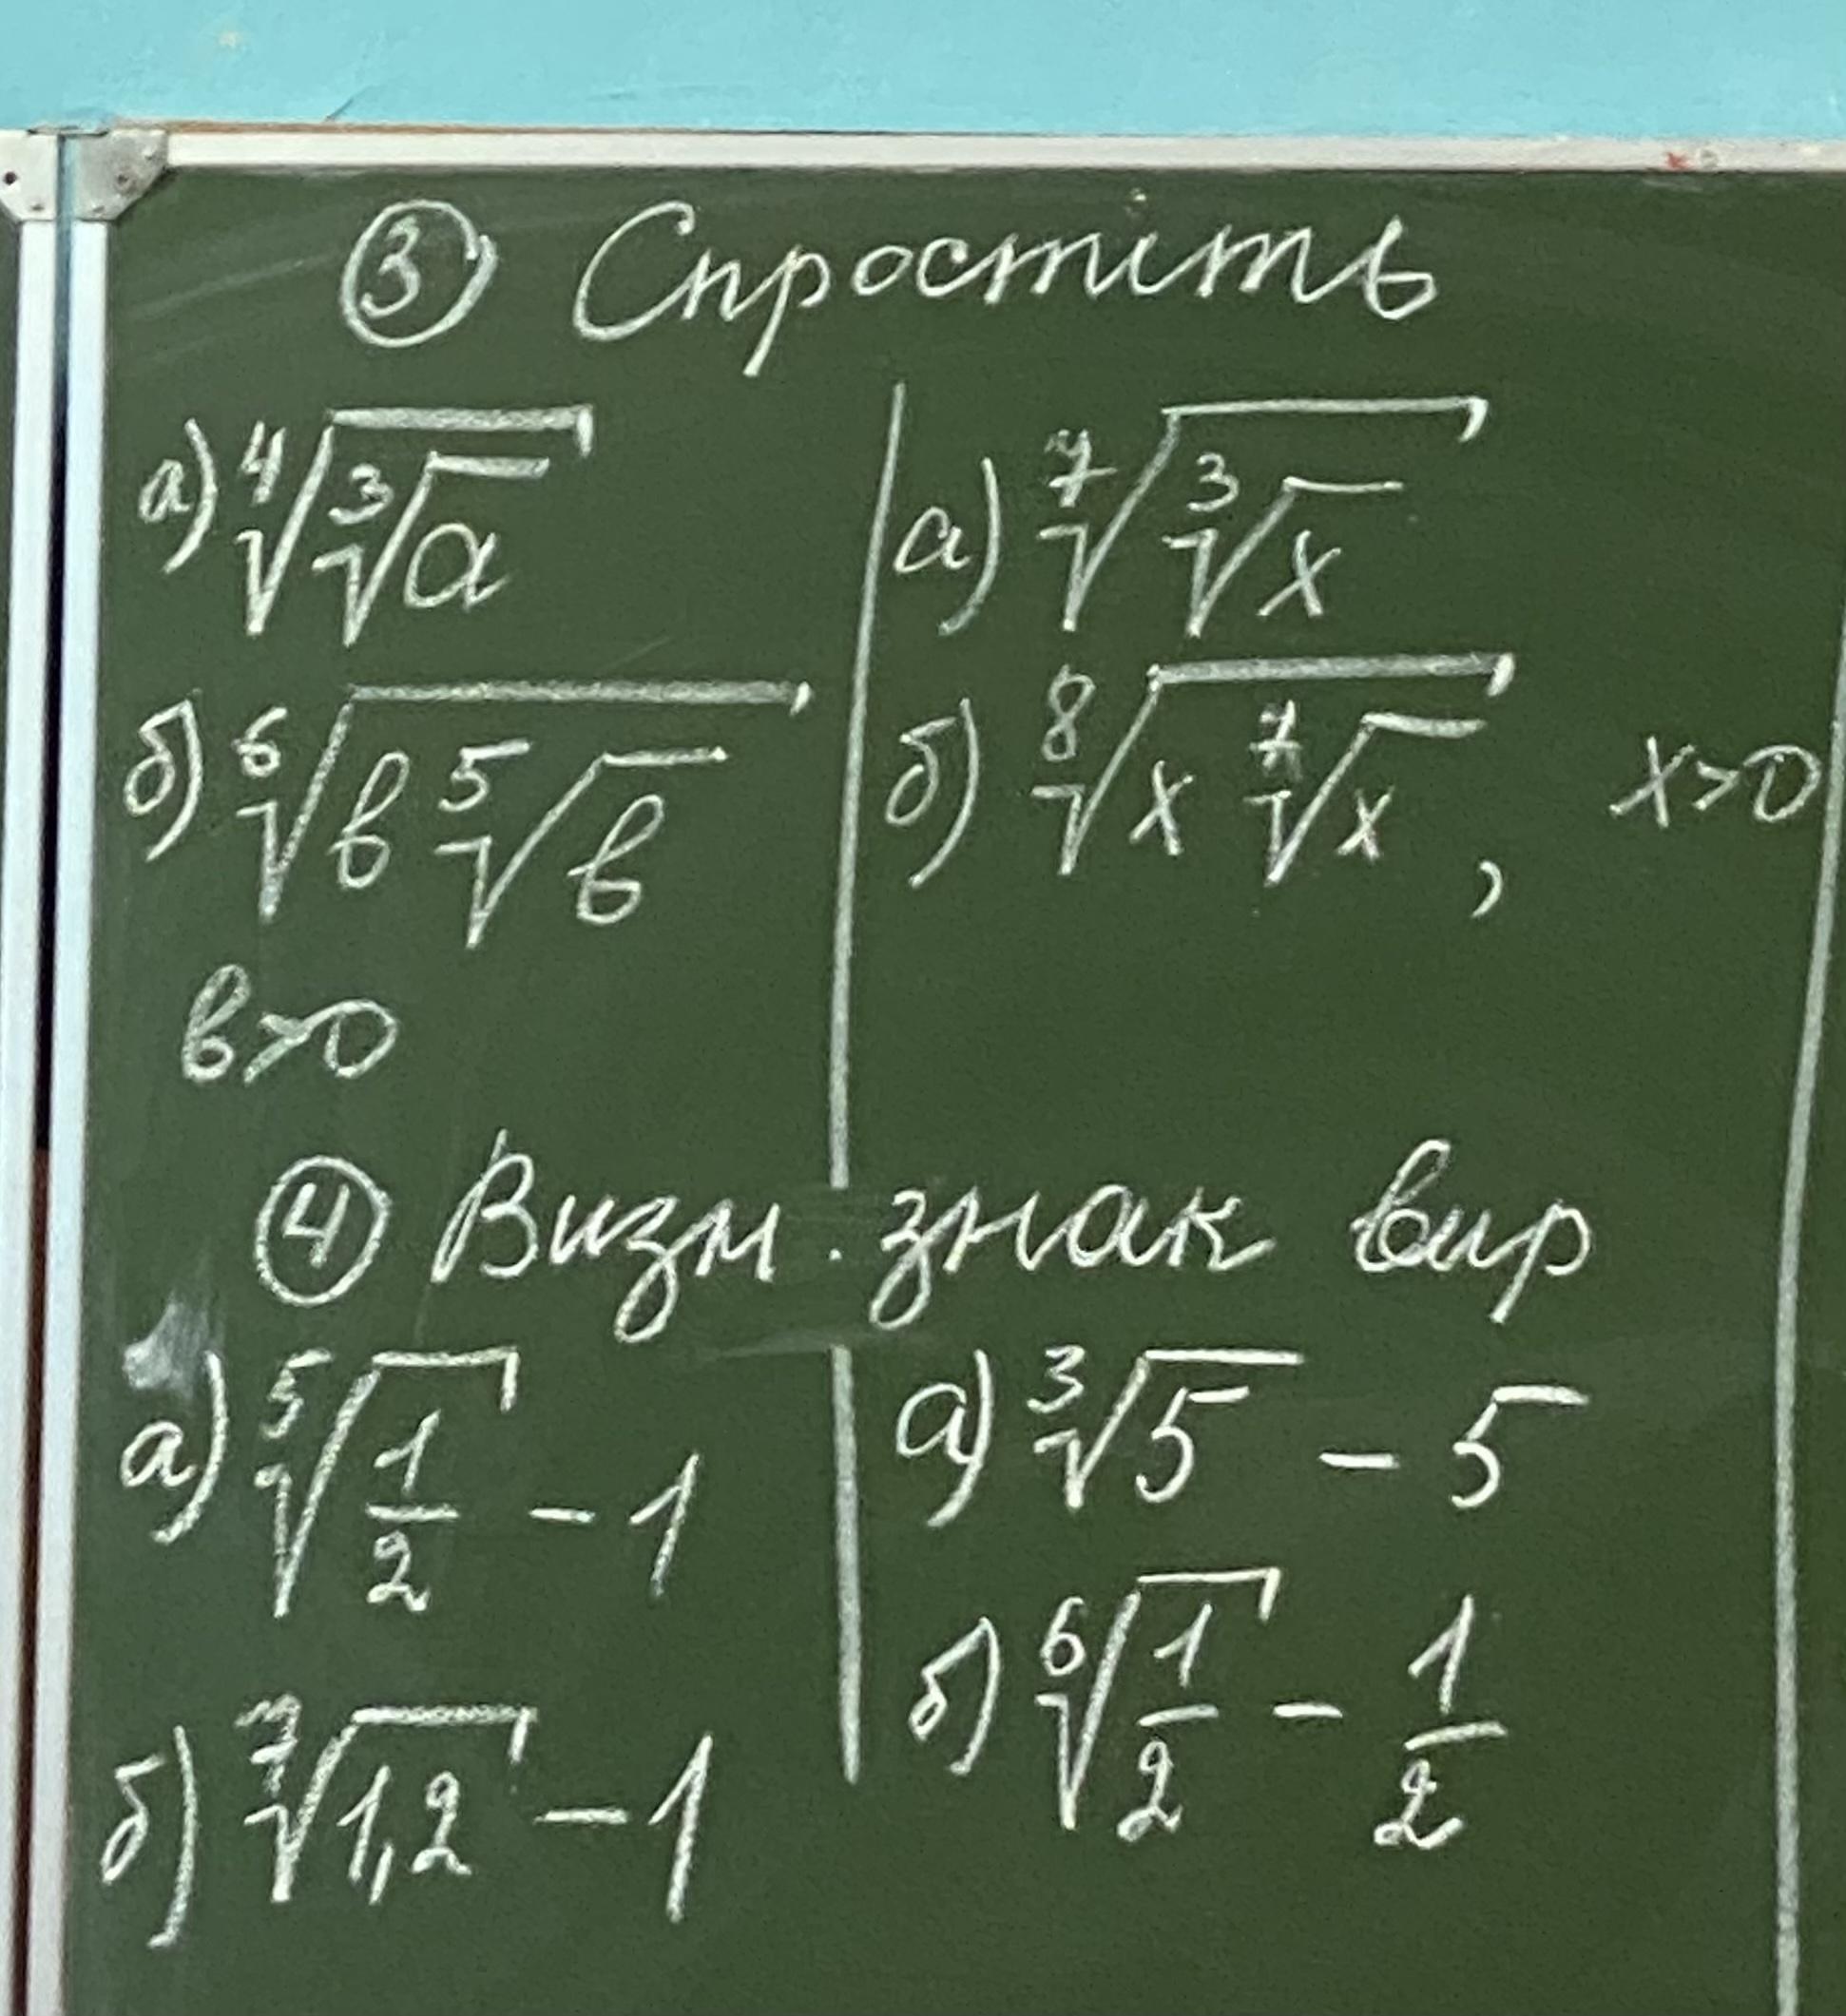 ③ Спростіть
а) ⁴√(³√a)
б) ⁶√(в ⁵√в)
в>0
а) ⁷√(³√x)
б) ⁸√(x ⁷√x), x>0
④ Визн. знак вир
а) ⁵√(1/2) - 1
б) ⁷√(1,2) - 1
а) ³√5 - 5
б) ⁶√(1/2) - 1/2